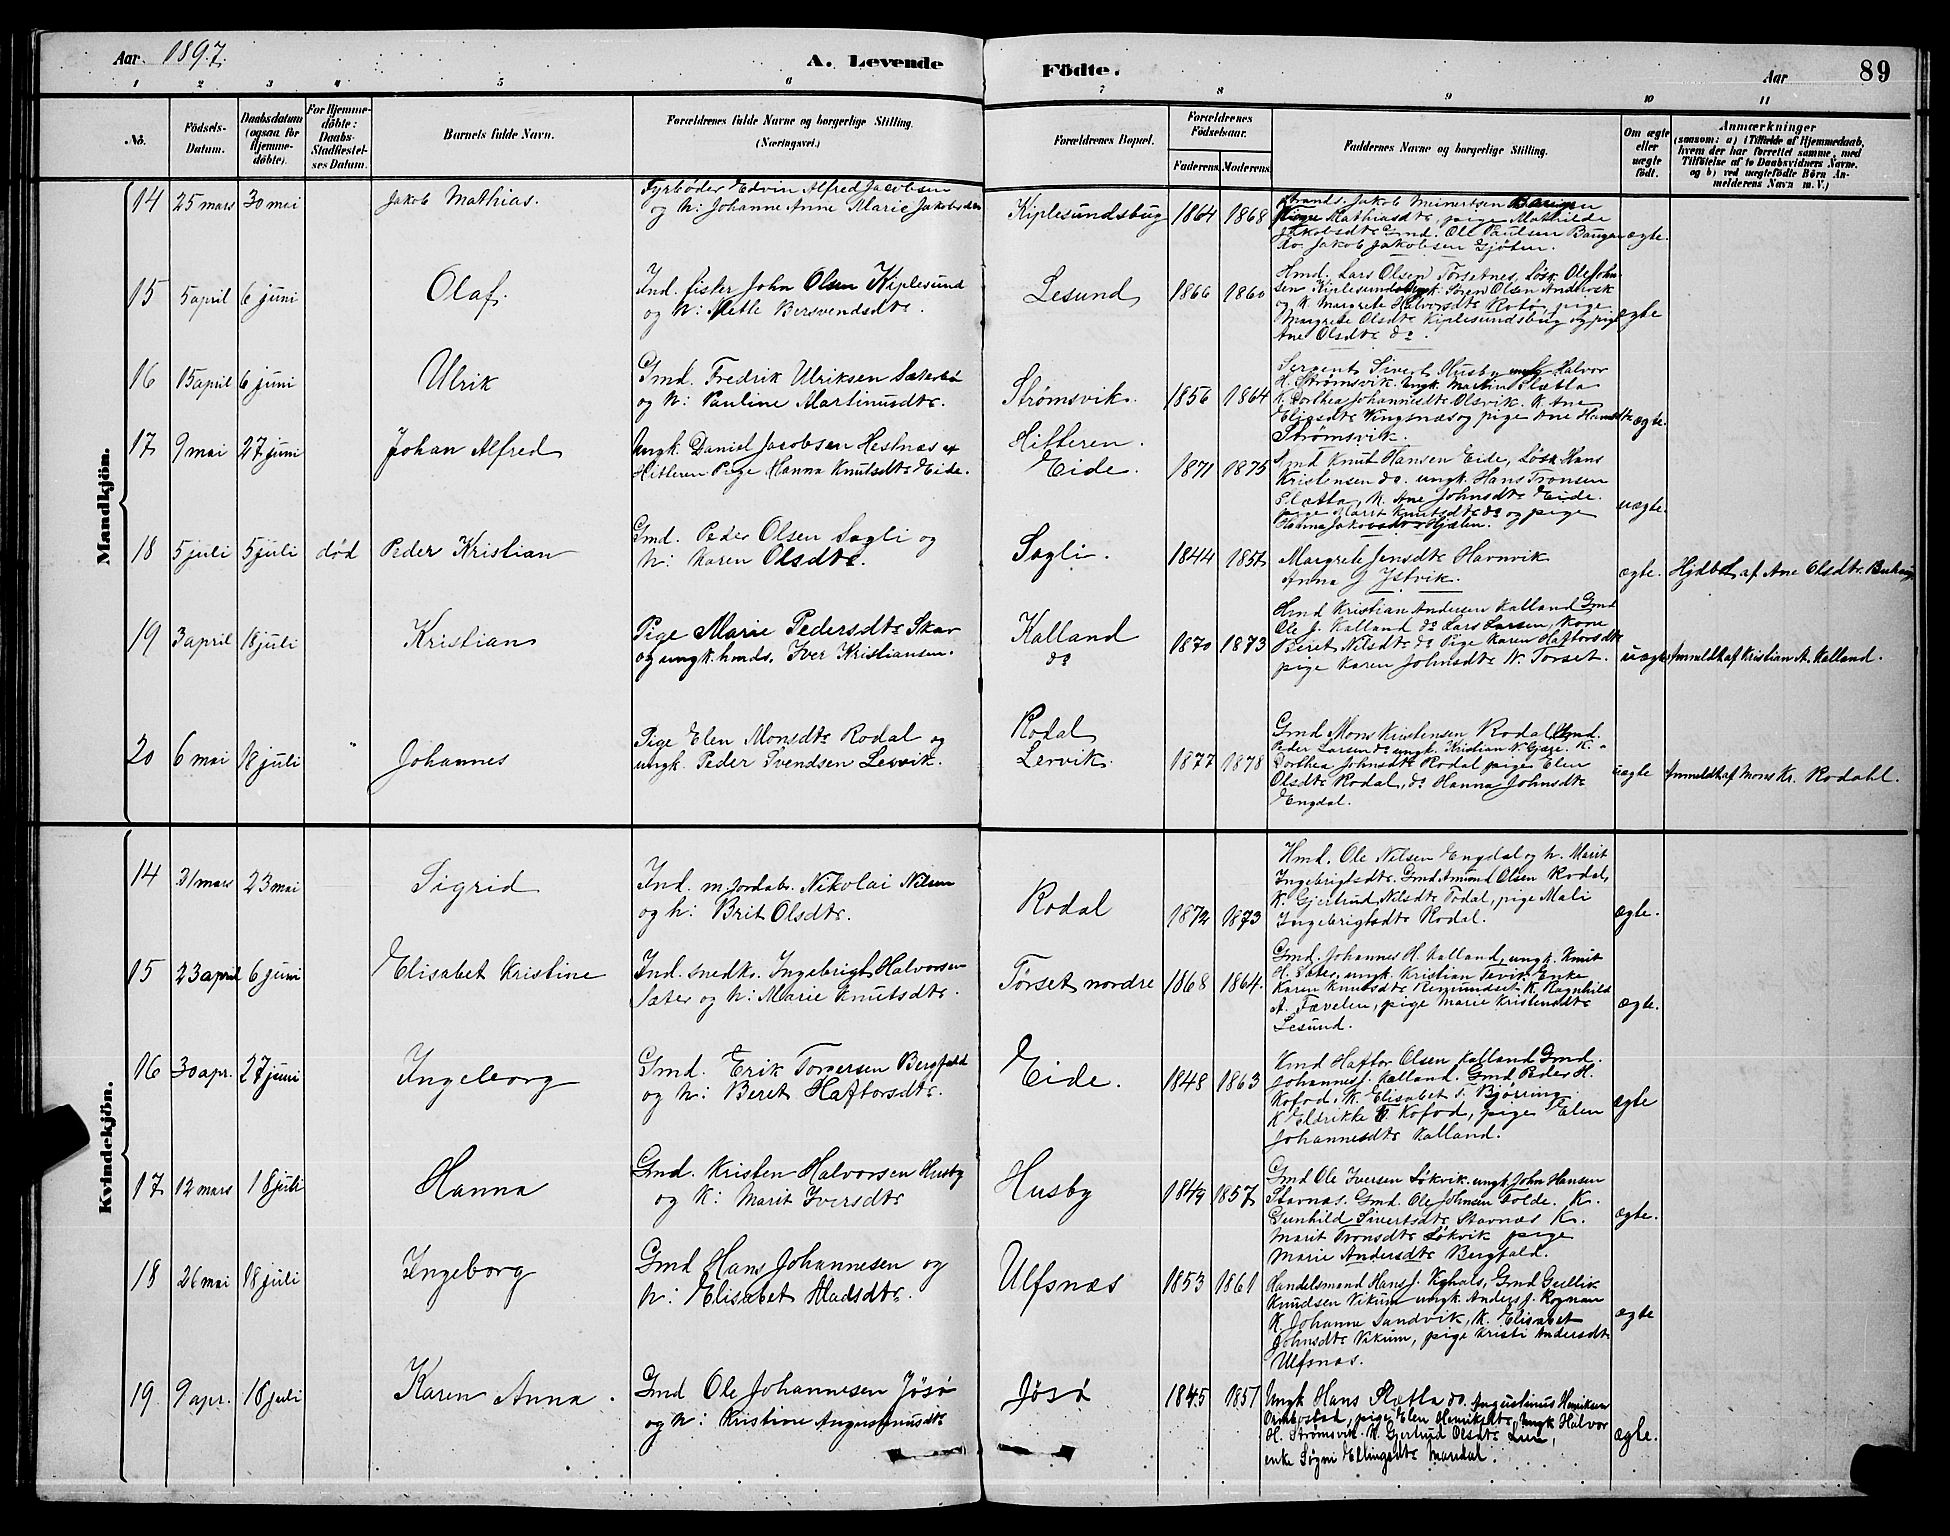 Aar 1897.
A. Levende
Födte.
Aar
89
1 2 3 4 5 6 7 8 9 10 11
No.
Födsels-
Datum.
Daabsdatum
(ogsaa for
Hjemme-
döbte).
For Hjemme-
döbte:
Daabs-
Stadfæstel-
ses Datum.
Barnets fulde Navn.
Forældrenes fulde Navne og borgerlige Stilling.
(Næringsvei.)
Forældrenes Bopæl.
Forældrenes
Födselsaar.
Faderens. Moderens.
Faddernes Navne og borgerlige Stilling.
Om ægte
eller
uægte
födt.
Anmærkninger
(saasom: a) i Tilfælde af Hjemmedaab,
hvem der har forrettet samme, med
Tilföielse af to Daabsvidners Navne.
og b) ved uægtefödte Börn An-
melderens Navn m. V.)
Mandkjön.
14 25 mars 30 mai Jakob Mathias.
Fyrbøder Edvin Alfred Jacobsen
og h: Johanne Anne Marie Jakobsdtr
Kiplesundsbug 1864 1868
Strands. Jakob Meinertsen
Mathiasdtr, pige Mathilde
Jakobsdtr Gmd. Ole Paulsen Baugen
do. Jakob Jakobsen Gjöten.
ægte.
15 5 april 6 juni Olaf.
Ind. fisker John Olsen Kiplesund
og h: Mette Bersvendsdtr.
Lesund 1866 1860
Hmd. Lars Olsen Torsetnes, Løsk. Ole John-
sen Kiplesundsbug. Ungk. Sören Olsen Andersk
og K. Margrete Halvorsdtr Rotö, pige
Margrete Olsdtr Kiplesundsbug og pige
Ane Olsdtr do.
ægte
16 15 april 6 juni Ulrik
Gmd. Fredrik Ulriksen Sæterbö
og h: Pauline Martinusdtr.
Strømsvik. 1856 1864
Sergent Sivert Husby ungk Halvor
H. Strømsvik. Ungk. Martin Slætta
K. Dorthea Johannesdtr Olsvik. K. Ane
Eliasdtr Vingsnæs og pige Ane Hansdtr
Strømsvik.
ægte.
17 9 mai 27 juni Johan Alfred
Ungk. Daniel Jacobsen Hestnæs
Hitteren Pige Hanna Knutsdtr Eide.
Hitteren.
Eide. 1871 1875
Gmd Knut Hansen Eide, Løsk Hans
Kristensen do. ungk. Hans Tronsen
Slætta, K. Ane Johnsdtr Eide.
pige Marit Knutsdtr do og pige
Hanna Jakobsdtr Hjælen.
uægte.
18 5 juli 5 juli død Peder Kristian
Gmd. Peder Olsen Sagli og
h: Karen Olsdtr.
Sagli. 1844 1851
Margrete Jensdtr Havnvik
Anna J Ystvik.
ægte. Hjdbt af Ane Olsdtr. Buhaug
19 3 april 18 juli Kristian
Pige Marie Pedersdtr Skar
og ungk. hmds. Iver Kristiansen.
Kalland
do 1870 1873
Hmd Kristian Andersen Kalland Gmd
Ole J. Kalland do Lars Larsen, Kone
Beret Nilsdtr do Pige Karen Haftorsdtr
pige Karen Johnsdtr N. Torset.
uægte Anmeldt af Kristian A. Kalland.
20 6 mai 18 juli " Johannes
Pige Elen Monsdtr Rodal og
ungk. Peder Svendsen Lervik.
Rodal
Lervik. 1877 1878
Gmd Mons Kristensen Rodal Gmd.
Peder Larsen do ungk. Kristian N. Gjøge. K.
Dorthea Johnsdtr Rodal pige Elen
Olsdtr Rodal, do Hanna Johnsdtr
Engdal.
uægte Anmeldt af Mons Kr. Rodahl.
Kvindekjön.
14 31 mars 23 mai Sigrid
Ind. m jordabr. Nikolai Nilsen
og h: Brit Olsdtr.
Rodal 1872 1873
Hmd. Ole Nilsen Engdal og h. Marit
Ingebrigtsdtr. Gmd Amund Olsen Rodal,
K. Gjertrud Nilsdtr Todal, pige Mali
Ingebrigtsdtr Rodal.
ægte.
15 23 april 6 juni Elisabet Kristine
Ind. snedkr. Ingebrigt Halvorsen
Sæter og h: Marie Knutsdtr.
Torset nordre 1868 1864.
Gmd. Johannes H. Kalland, ungk. Knut
H. Sæter, ungk. Kristian Tevik Enke
Karen Knutsdtr Remundset K. Ragnhild
A. Fævelen, pige Marie Kristensdtr
Lesund.
ægte.
16 30 apr. 27 juni Ingeborg
Gmd. Erik Torgersen Bergfald
og h: Beret Haftorsdtr.
Eide. 1848 1863
Kmd Haftor Olsen Kalland Gmd.
Johannes J. Kalland. Gmd Peder H.
Kofod. K. Elisabet S. Bjørring
K Eldrikke Kofod, pige Elen
Johannesdtr Kalland.
ægte
17 12 mars 18 juli Hanna
Gmd. Kristen Halvorsen Husby
og K: Marit Iversdtr
Husby 1849 1857
Gmd Ole Iversen Løkvik ungk John Hansen
Stavnæs. Gmd. Ole Johnsen Golde. K.
Gunhild Sivertsdtr Stavnæs K.
Marit Tronsdtr Løkvik pige
Marie Andersdtr Bergfald.
ægte.
18 26 mai 18 juli Ingeborg
Gmd Hans Johannesen og
h: Elisabet Madsdtr.
Ulfsnæs 1853 1861
Handelsmand Hans J. Kghals, Gmd Gullik
Knudsen Vikum ungk. Anders J. Rognan
K. Johanne Sandvik, K. Elisabet
Johnsdtr Vikum, pige Kristi Andersdtr
Ulfsnæs.
ægte
19 9 apr. 18 juli Karen Anna.
Gmd Ole Johannesen Jösö
og h: Kristine Augustinusdtr
Jösö 1845 1851
Ungk Hans Slætta do. Augustinus Henriksen
Ormbostad, pige Elen Henriksdtr, Ungk Halvor
H. Strømsvik. K. Gjertrud Olsdtr Lien,
enke Søgni Ellingsdtr Mardal.
ægte.